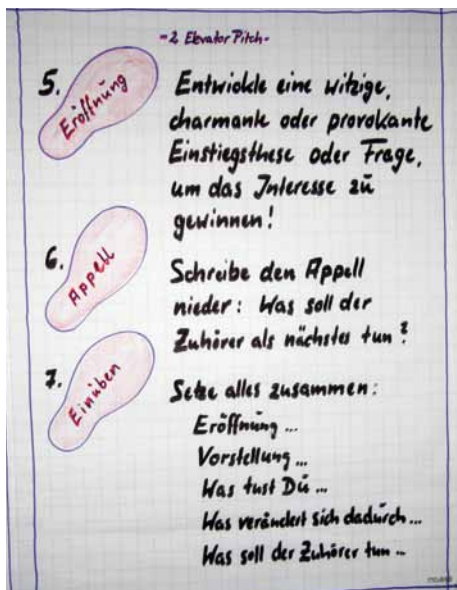 -2 Elevator Pitch-
5. Eröffnung
Entwickle eine witzige,
charmante oder provokante
Einstiegsthese oder Frage,
um das Interesse zu
gewinnen!
6. Appell
Schreibe den Appell
nieder: Was soll der
Zuhörer als nächstes tun?
7. Einüben
Setze alles zusammen:
Eröffnung...
Vorstellung...
Was tust Du...
Was verändert sich dadurch...
Was soll der Zuhörer tun...